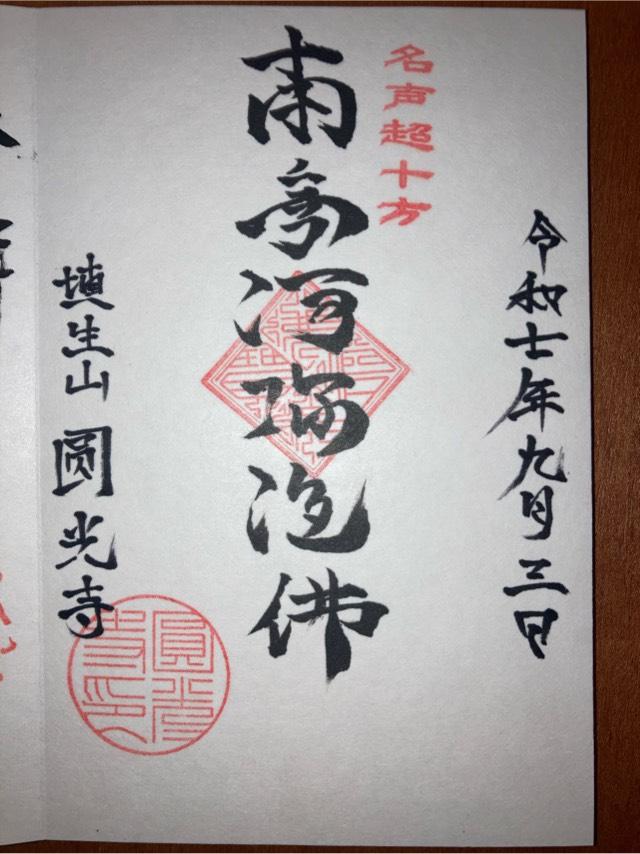 令和七年九月三日
名声超十方
南無阿弥陀佛
埴生山 圓光寺
圓光寺印